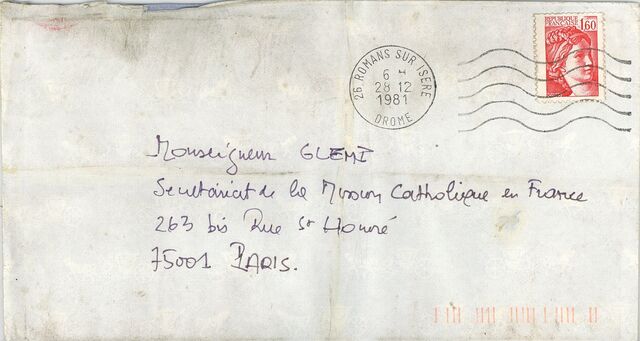 RÉPUBLIQUE FRANÇAISE 1,60
26 ROMANS SUR ISERE
6 H
28-12
1981
DROME
Monseigneur GLEMI
Secrétariat de la Mission Catholique en France
263 bis Rue St Honoré
75001 PARIS.